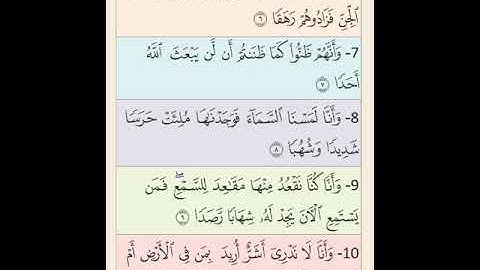 ٱلْجِنِّ فَزَادُوهُمْ رَهَقًا ٦
7- وَأَنَّهُمْ ظَنُّوا۟ كَمَا ظَنَنتُمْ أَن لَّن يَبْعَثَ ٱللَّهُ
أَحَدًا ٧
8- وَأَنَّا لَمَسْنَا ٱلسَّمَآءَ فَوَجَدْنَٰهَا مُلِئَتْ حَرَسًا
شَدِيدًا وَشُهُبًا ٨
9- وَأَنَّا كُنَّا نَقْعُدُ مِنْهَا مَقَٰعِدَ لِلسَّمْعِ ۖ فَمَن
يَسْتَمِعِ ٱلْـَٔانَ يَجِدْ لَهُۥ شِهَابًا رَّصَدًا ٩
10- وَأَنَّا لَا نَدْرِىٓ أَشَرٌّ أُرِيدَ بِمَن فِى ٱلْأَرْضِ أَمْ